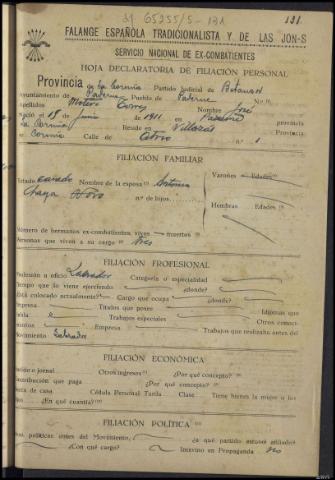 65255/5-131
131
FALANGE ESPAÑOLA TRADICIONALISTA Y DE LAS JON-S
SERVICIO NACIONAL DE EX-COMBATIENTES
HOJA DECLARATORIA DE FILIACIÓN PERSONAL
Provincia en La Coruña Partido Judicial de Betanzos
Ayuntamiento de Paderne Pueblo de Paderne N.º
Apellidos Torres Nombre José
Nacido el 15 de Junio de 1911 en Paderne provincia
La Coruña Reside en Villozás Provincia
Coruña Calle de n.º 1
FILIACIÓN FAMILIAR
Estado casado Nombre de la esposa Antonia
n.º de hijos. Varones Edades
Hembras Edades
Número de hermanos ex-combatientes vivos muertos
Personas que viven a su cargo tres
FILIACIÓN PROFESIONAL
Profesión u oficio Labrador Categoría o especialidad
Tiempo que lo viene ejerciendo ¿dónde?
Está colocado actualmente? Cargo que ocupa ¿dónde?
Empresa Títulos que posee Idiomas que
Trabajos especiales Otros conoci-
Empresa Trabajos que realizaba antes del
Movimiento Labrador
FILIACIÓN ECONÓMICA
o jornal Otros ingresos ¿Por qué concepto?
Contribución que paga ¿Por qué concepto?
de casa Cédula Personal Tarifa Clase Tiene bienes la mujer o los
¿En qué cuantía?
FILIACIÓN POLÍTICA
políticas antes del Movimiento, ¿a qué partido estuvo afiliado?
¿Con qué cargo? Intervino en Propaganda no